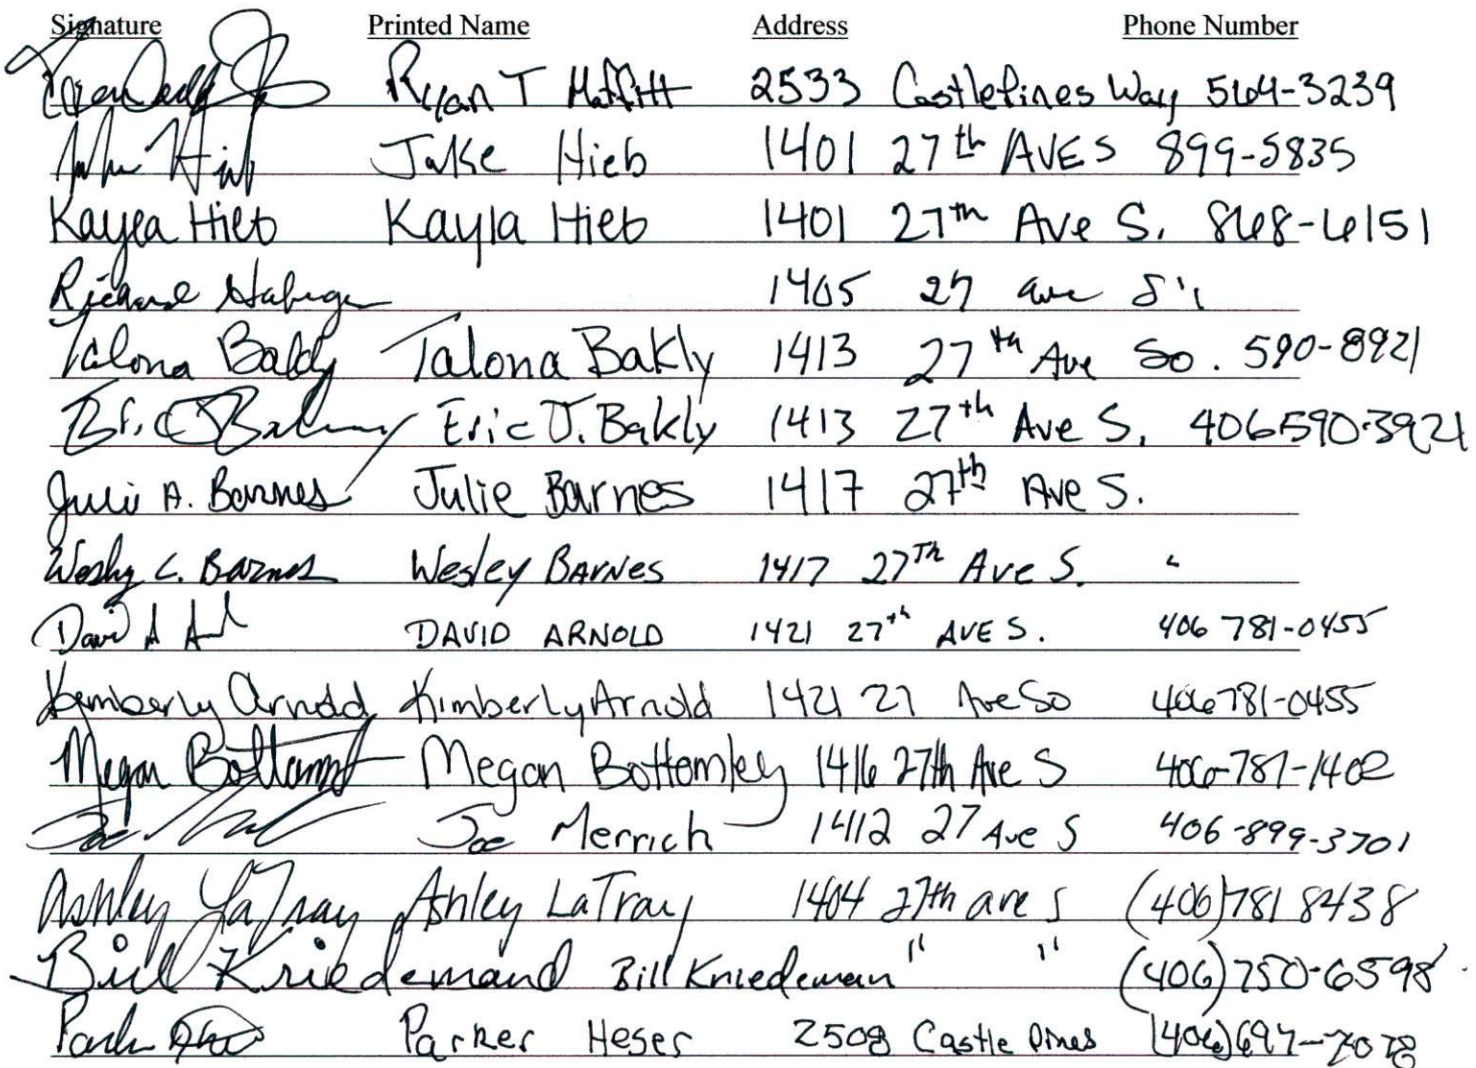 Signature Printed Name Address Phone Number
Ryan T Moffitt 2533 Castlepines Way 564-3239
Jake Hieb 1401 27th AVE S 899-5835
Kayla Hieb Kayla Hieb 1401 27th Ave S. 868-6151
Richard 1405 27 ave S.
Talona Bakly Talona Bakly 1413 27th Ave So. 590-8921
Eric J. Bakly 1413 27th Ave S. 406 590-3921
Julie A. Barnes Julie Barnes 1417 27th Ave S.
Wesley C. Barnes Wesley BARNES 1417 27Th Ave S. "
David A DAVID ARNOLD 1421 27th AVE S. 406 781-0455
Kimberly Arnold Kimberly Arnold 1421 27 Ave So 406 781-0455
Megan Bottomley Megan Bottomley 1416 27th Ave S 406-781-1402
Joe Joe Merrich 1412 27 Ave S 406-899-3701
Ashley LaTray Ashley LaTray 1404 27th ave S (406)781 8438
Bill Kriedemand Bill Kriedeman " " (406)750-6598
Parker Parker Heser 2508 Castle Pines (406)697-7078